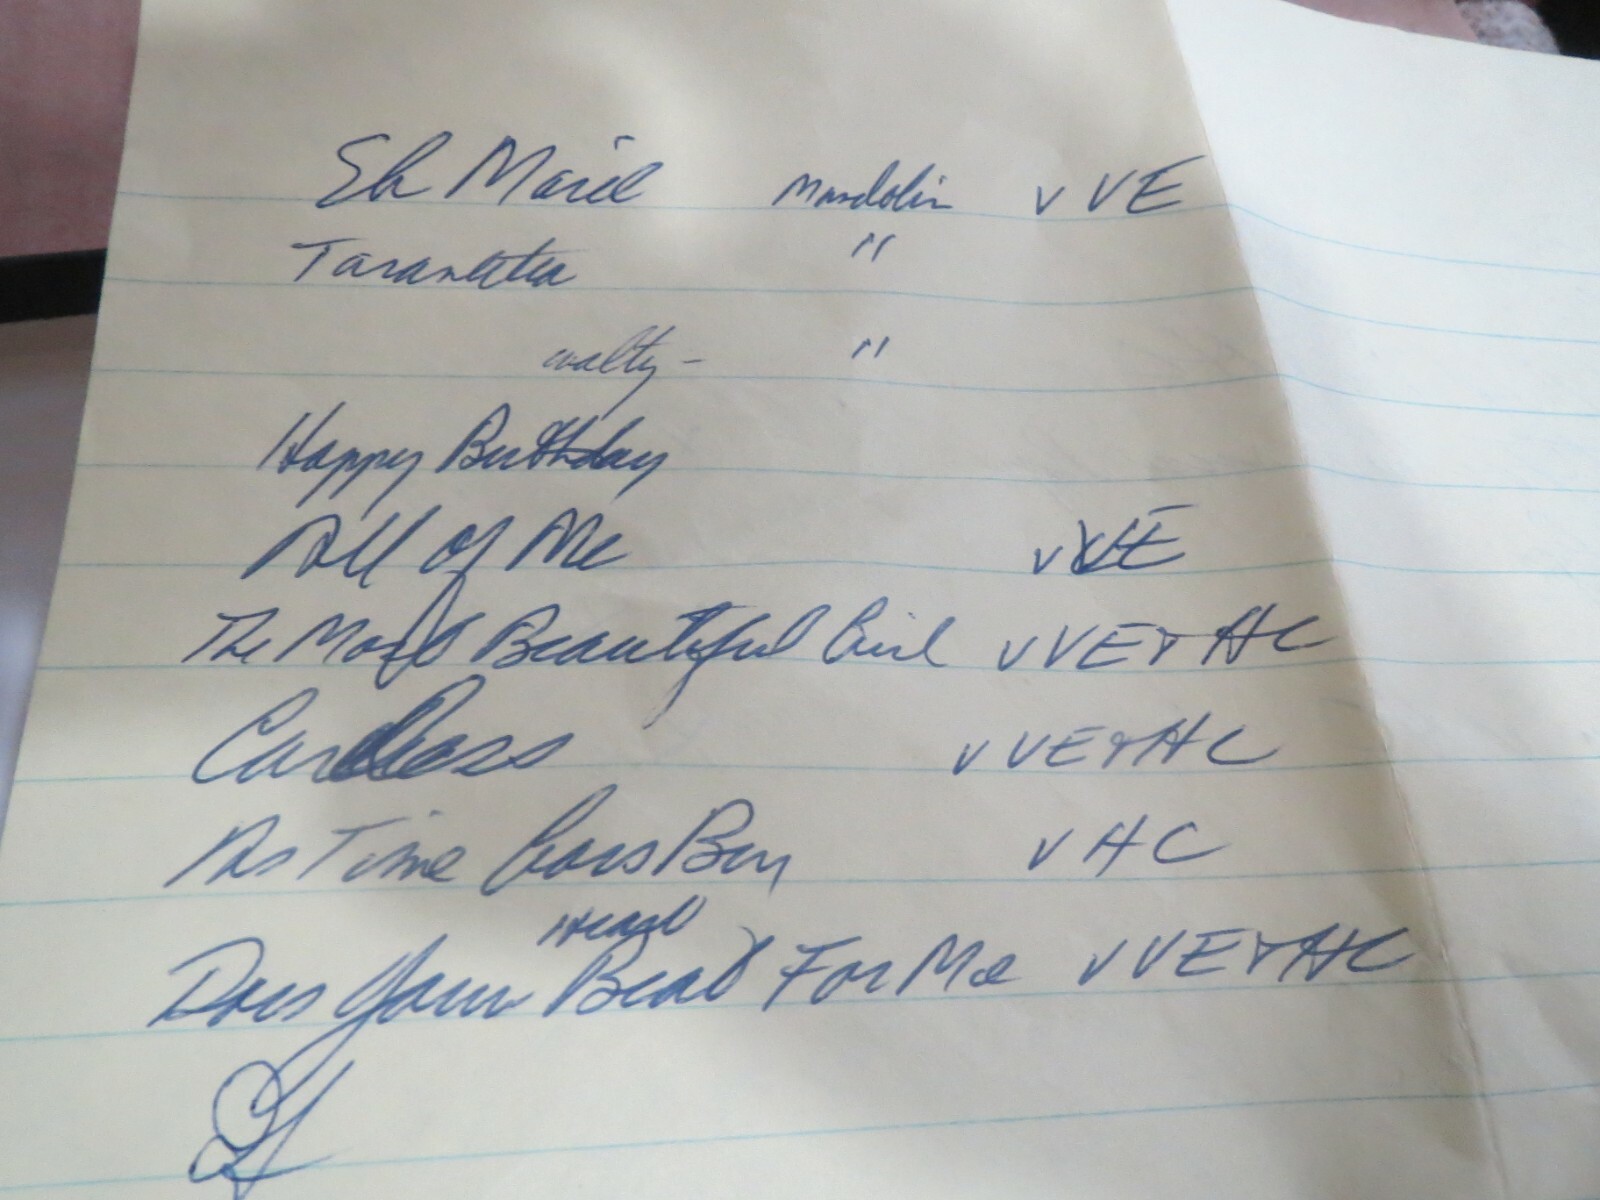 Eh Marie Mandolin v VE
Tarantella "
waltz - "
Happy Birthday
All of Me v VE
The Most Beautiful Girl v VE + HC
Careless v VE + HC
As Time Goes By v HC
Does Your Heart Beat For Me v VE + HC